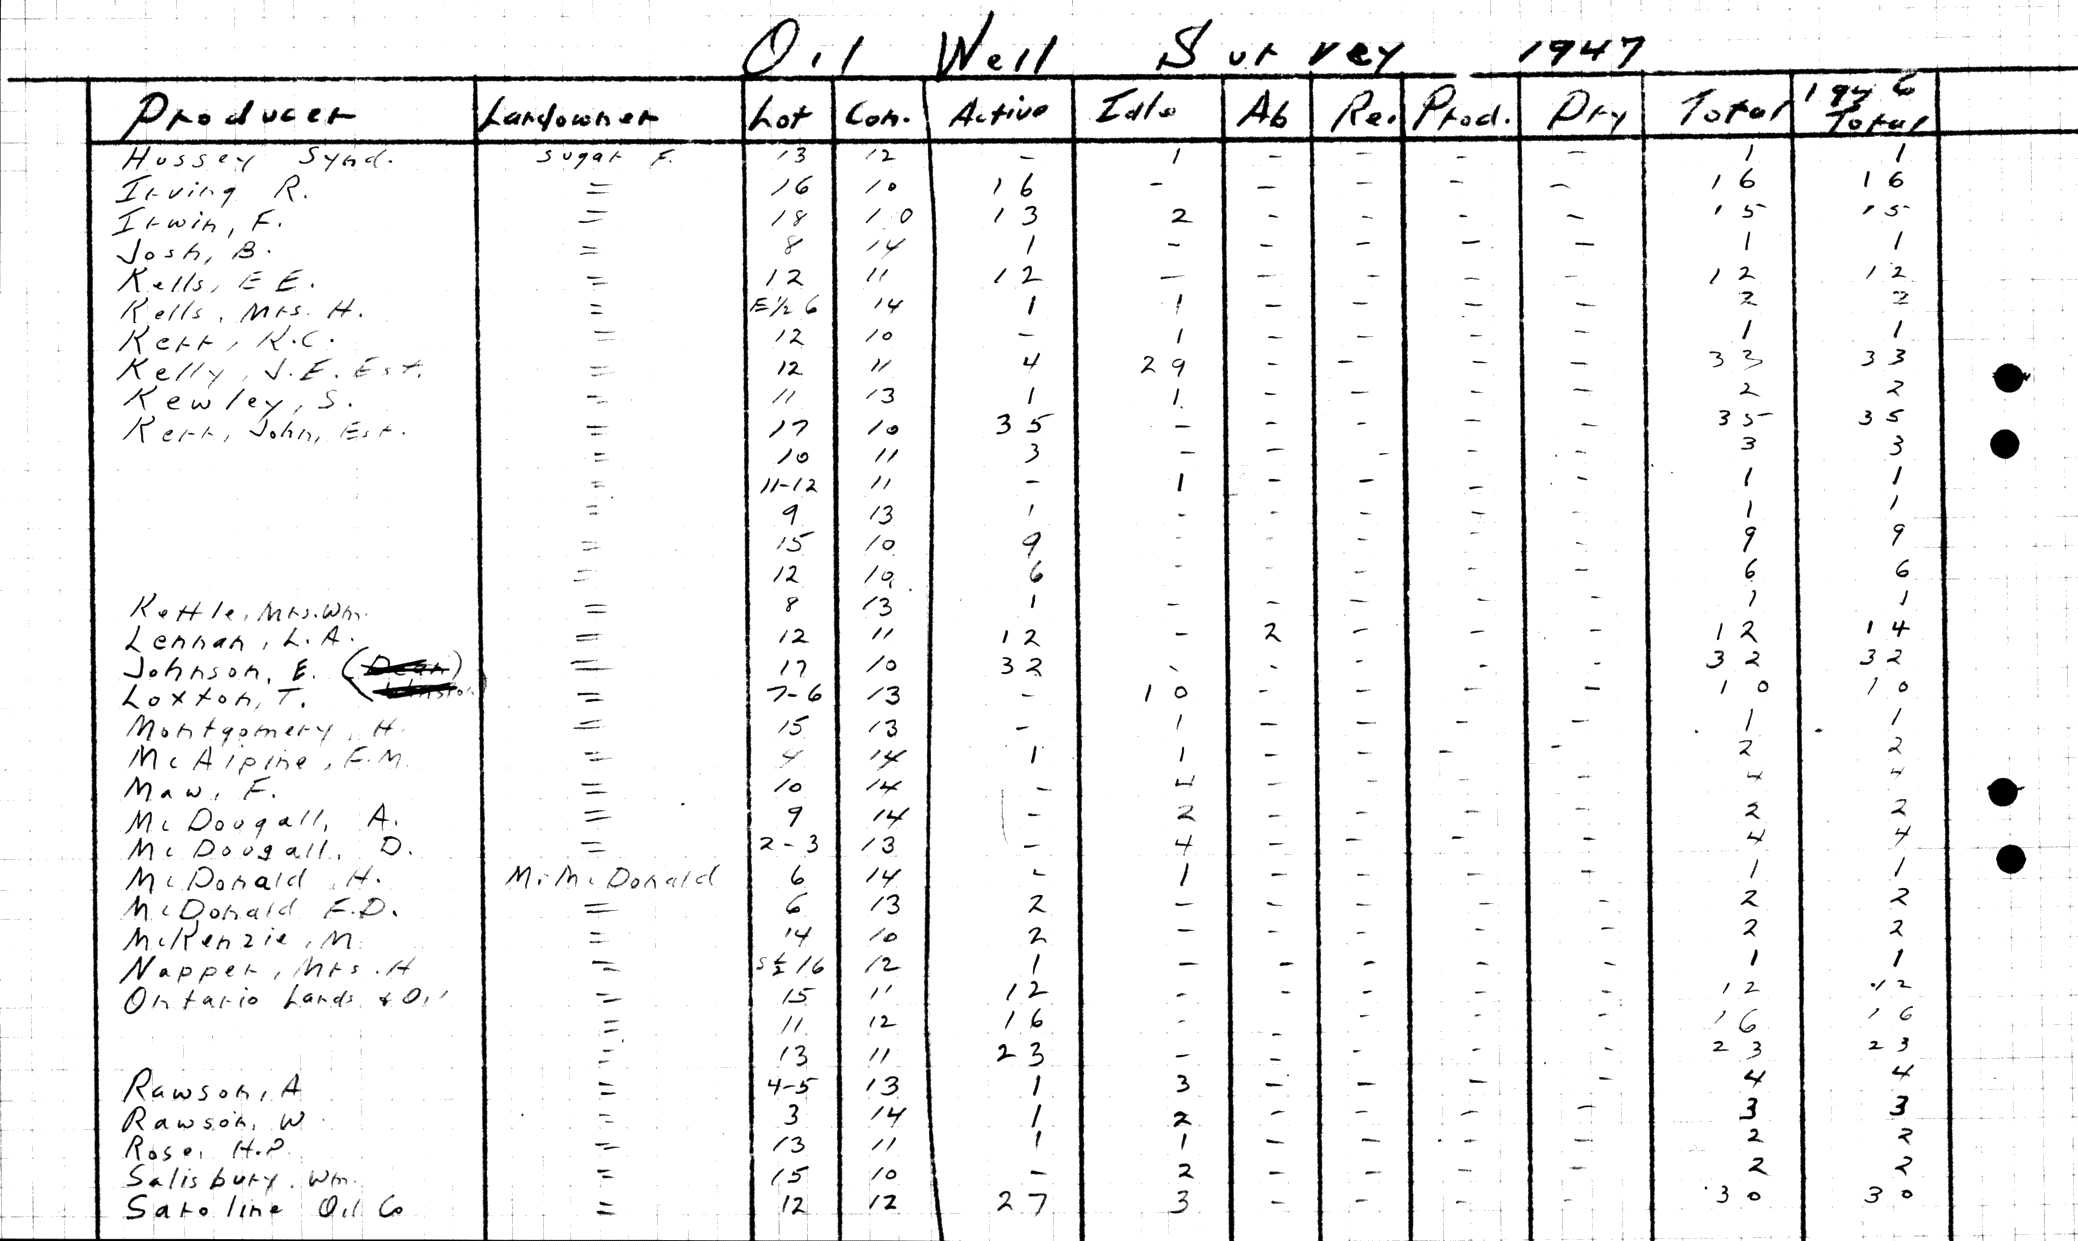 Oil Well Survey 1947
Producer Landowner Lot Con. Active Idle Ab Re. Prod. Dry Total 1946 Total
Hussey Synd. Sugar F. 13 12 - 1 - - - - 1 1
Irving R. = 16 10 16 - - - - - 16 16
Irwin, F. = 18 10 13 2 - - - - 15 15
Josh, B. = 8 14 1 - - - - - 1 1
Kells, E E. = 12 11 12 - - - - - 12 12
Kells, Mrs. H. = E½ 6 14 1 1 - - - - 2 2
Kerr, K.C. = 12 10 - 1 - - - - 1 1
Kelly, J.E. Est. = 12 11 4 29 - - - - 33 33
Kewley, S. = 11 13 1 1 - - - - 2 2
Kerr, John, Est. = 17 10 35 - - - - - 35 35
= 10 11 3 - - - - - 3 3
= 11-12 11 - 1 - - - - 1 1
= 9 13 1 - - - - - 1 1
= 15 10 9 - - - - - 9 9
= 12 10 6 - - - - - 6 6
Kettle, Mrs. Wm. = 8 13 1 - - - - - 1 1
Lennan, L.A. = 12 11 12 - 2 - - - 12 14
Johnson, E. = 17 10 32 - - - - - 32 32
Loxton, T. = 7-6 13 - 10 - - - - 10 10
Montgomery, H. = 15 13 - 1 - - - - 1 1
McAlpine, F.M. = 4 14 1 1 - - - - 2 2
Maw, F. = 10 14 - 4 - - - - 4 4
McDougall, A. = 9 14 - 2 - - - - 2 2
McDougall, D. = 2-3 13 - 4 - - - - 4 4
McDonald, H. M. McDonald 6 14 - 1 - - - - 1 1
McDonald F.D. = 6 13 2 - - - - - 2 2
McKenzie, M. = 14 10 2 - - - - - 2 2
Napper, Mrs. H = S½ 16 12 1 - - - - - 1 1
Ontario Lands & Oil = 15 11 12 - - - - - 12 12
= 11 12 16 - - - - - 16 16
= 13 11 23 - - - - - 23 23
Rawson, A = 4-5 13 1 3 - - - - 4 4
Rawson, W = 3 14 1 2 - - - - 3 3
Rose, H.P. = 13 11 1 1 - - - - 2 2
Salisbury, Wm. = 15 10 - 2 - - - - 2 2
Saroline Oil Co = 12 12 27 3 - - - - 30 30